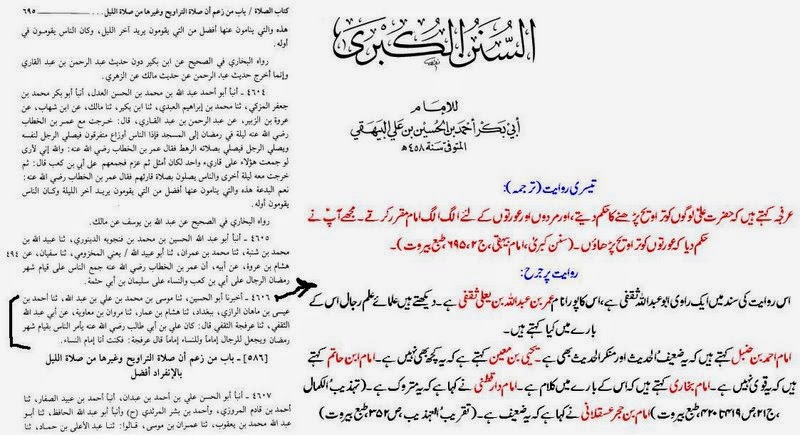 كتاب الصلاة / باب من زعم أن صلاة التراويح وغيرها من صلاة الليل ٦٩٥
هذه والتي ينامون عنها أفضل من التي يقومون يريد آخر الليل، وكان الناس يقومون في
أوله.
رواه البخاري في الصحيح عن ابن بكير دون حديث عبد الرحمن بن عبد القاري
وإنما أخرج حديث عبد الرحمن عن حديث مالك عن الزهري.
٤٦٠٤ ـ أنبأ أبو أحمد عبد الله بن محمد بن الحسن العدل، أنبأ أبو بكر محمد بن
جعفر المزكي، ثنا محمد بن إبراهيم العبدي، ثنا ابن بكير، ثنا مالك، عن ابن شهاب، عن
عروة بن الزبير، عن عبد الرحمن بن عبد القاري، قال: خرجت مع عمر بن الخطاب
رضي الله عنه ليلة في رمضان إلى المسجد فإذا الناس أوزاع متفرقون فيصلي الرجل لنفسه
ويصلي الرجل فيصلي بصلاته الرهط فقال عمر بن الخطاب رضي الله عنه: والله إني لأرى
لو جمعت هؤلاء على قارىء واحد لكان أمثل ثم عزم فجمعهم على أبي بن كعب قال: ثم
خرجت معه ليلة أخرى والناس يصلون بصلاة قارئهم فقال عمر بن الخطاب رضي الله عنه:
نعم البدعة هذه والتي ينامون عنها أفضل من التي يقومون يريد آخر الليلة وكان الناس
يقومون أوله.
رواه البخاري في الصحيح عن عبد الله بن يوسف عن مالك.
٤٦٠٥ ـ أنبأ أبو عبد الله الحسين بن محمد بن فنجويه الدينوري، ثنا عبيد الله بن
محمد بن شنبة، ثنا محمد بن عمران، ثنا أبو عبيد الله / يعني المخزومي، ثنا سفيان، عن ٤٩٤
هشام بن عروة، عن أبيه، أن عمر بن الخطاب رضي الله عنه جمع الناس على قيام شهر
رمضان الرجال على أبي بن كعب والنساء على سليمان بن أبي حثمة.
٤٦٠٦ ـ أخبرنا أبو الحسين، ثنا موسى بن محمد بن علي بن عبد الله، ثنا أحمد بن
عيسى بن ماهان الرازي، ببغداد، ثنا هشام بن عمار، ثنا مروان بن معاوية، عن أبي عبد الله
الثقفي، ثنا عرفجة الثقفي قال: كان علي بن أبي طالب رضي الله عنه يأمر الناس بقيام شهر
رمضان ويجعل للرجال إماماً وللنساء إماماً قال عرفجة: فكنت أنا إمام النساء.
[٥٨٦] ـ باب من زعم أن صلاة التراويح وغيرها من صلاة الليل
بالإنفراد أفضل
٤٦٠٧ ـ أنبأ أبو الحسن علي بن أحمد بن عبدان، أنبأ أحمد بن عبيد الصفار، ثنا
أحمد بن قدام المروزي، وأحمد بن بشر المرثدي (ح) وأنبأ أبو عبد الله الحافظ، ثنا أبو
عبد الله محمد بن يعقوب، ثنا عمران بن موسى، قالوا: ثنا عبد الأعلى بن حماد، ثنا
السنن الكبرى
للإمام
أبي بكر أحمد بن الحسين بن علي البيهقي
المتوفى سنة ٤٥٨ هـ
تیسری روایت (ترجمہ):
عرفجہ کہتے ہیں کہ حضرت علیؓ لوگوں کو تراویح پڑھنے کا حکم دیتے، اور مردوں اور عورتوں کے لئے الگ الگ امام مقرر کرتے۔ مجھے آپؓ نے
حکم دیا کہ عورتوں کو تراویح پڑھاؤں۔ (سنن کبریٰ، امام بیہقی، ج۲، ۶۹۵ طبع بیروت)۔
روایت پر جرح:
اس روایت کی سند میں ایک راوی ابو عبداللہ ثقفی ہے، اس کا پورا نام عمر بن عبداللہ بن یعلی ثقفی ہے۔ دیکھتے ہیں علمائے علم رجال اس کے
بارے میں کیا کہتے ہیں۔
امام احمد بن حنبل کہتے ہیں کہ یہ ضعیف الحدیث اور منکر الحدیث بھی ہے۔ یحییٰ بن معین کہتے ہے کہ یہ کچھ بھی نہیں ہے۔ امام ابن حاتم کہتے
ہیں کہ یہ قوی نہیں ہے۔ امام بخاری کہتے ہیں کہ اس کے بارے میں کلام ہے۔ امام دار قطنی نے کہا ہے کہ یہ متروک ہے۔ (تہذیب الکمال
، ج۲۱، ص۴۱۹ تا ۴۲۰، طبع بیروت) امام ابن حجر عسقلانی نے کہا ہے کہ یہ ضعیف ہے۔ (تقریب التہذیب، ص۳۵۲، طبع بیروت)۔